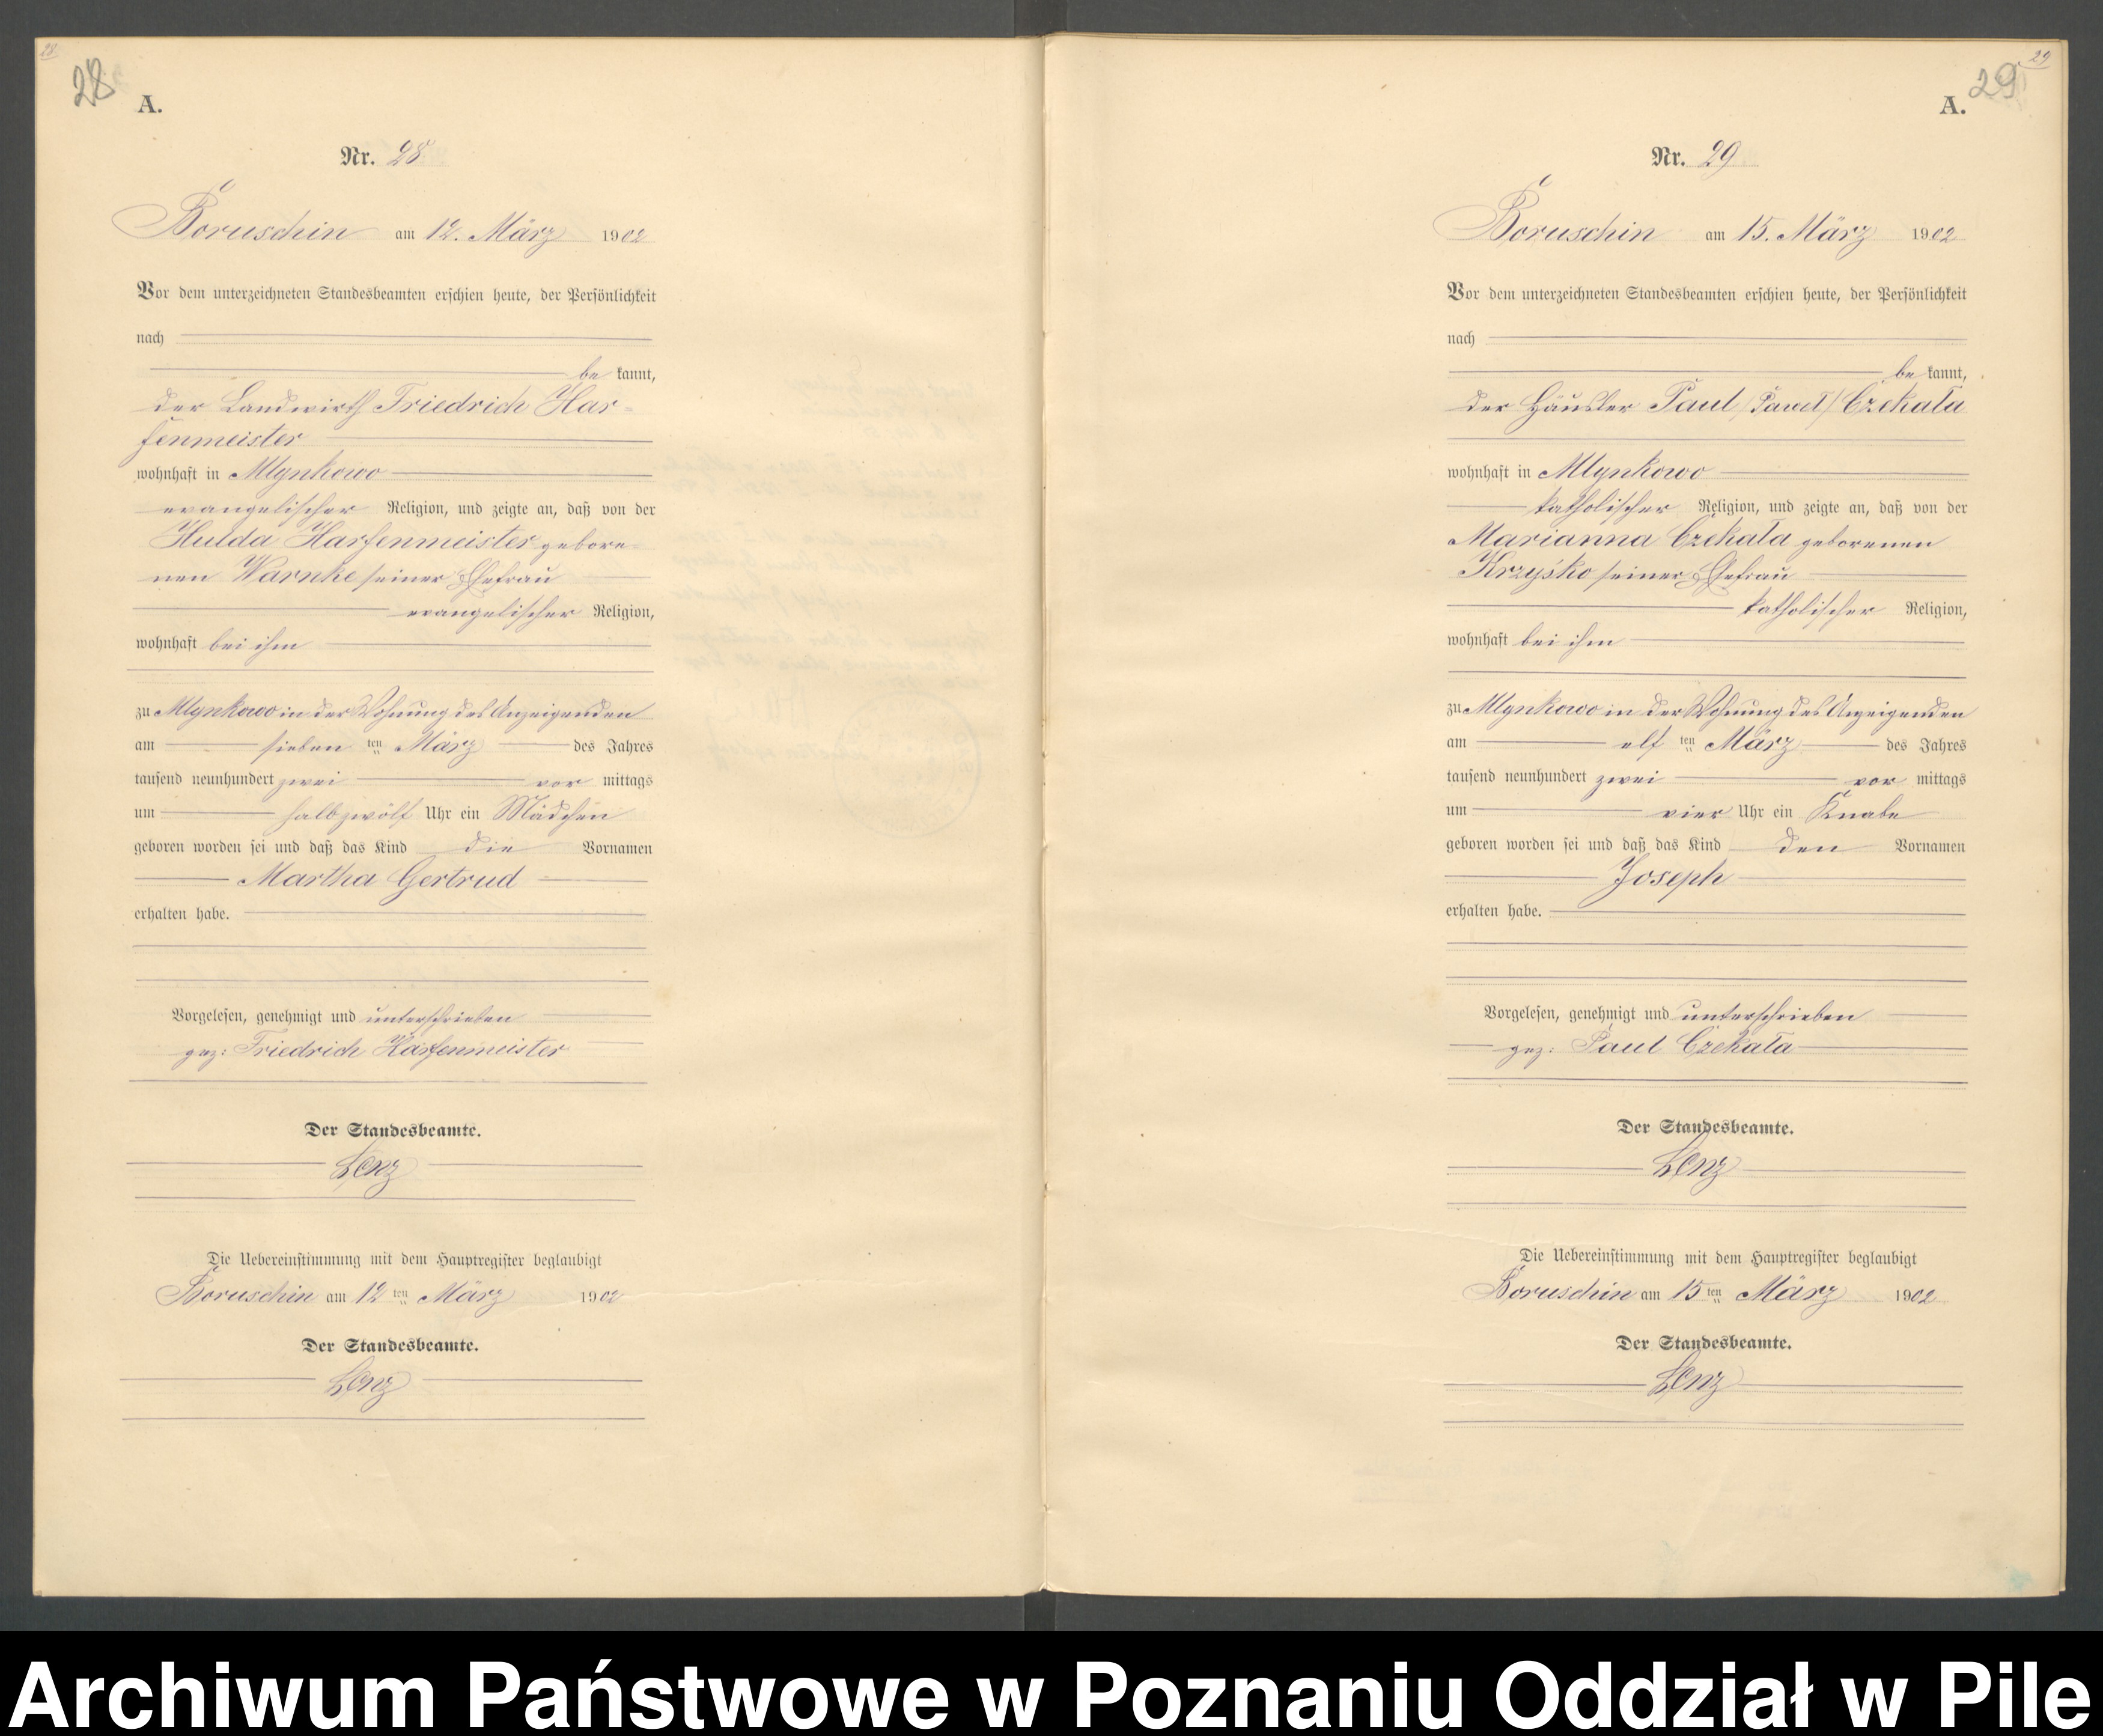 28
28
A.
Nr. 28
Boruschin am 12. März 1902
Vor dem unterzeichneten Standesbeamten erschien heute, der Persönlichkeit
nach
be kannt,
der Landwirth Friedrich Har-
fenmeister
wohnhaft in Mlynkowo
evangelischer Religion, und zeigte an, daß von der
Hulda Harfenmeister gebore-
nen Warnke seiner Ehefrau
evangelischer Religion,
wohnhaft bei ihm
zu Mlynkowo in der Wohnung des Anzeigenden
am sieben ten März des Jahres
tausend neunhundert zwei vor mittags
um halbzwölf Uhr ein Mädchen
geboren worden sei und daß das Kind die Vornamen
Martha Gertrud
erhalten habe.
Vorgelesen, genehmigt und unterschrieben
gez: Friedrich Harfenmeister
Der Standesbeamte.
Lenz
Die Uebereinstimmung mit dem Hauptregister beglaubigt
Boruschin am 12 ten März 1902
Der Standesbeamte.
Lenz
29
29
A.
Nr. 29
Boruschin am 15. März 1902
Vor dem unterzeichneten Standesbeamten erschien heute, der Persönlichkeit
nach
be kannt,
der Häusler Paul /Paweł/ Czekała
wohnhaft in Mlynkowo
katholischer Religion, und zeigte an, daß von der
Marianna Czekała geborenen
Krzyśko seiner Ehefrau
katholischer Religion,
wohnhaft bei ihm
zu Mlynkowo in der Wohnung des Anzeigenden
am elf ten März des Jahres
tausend neunhundert zwei vor mittags
um vier Uhr ein Knabe
geboren worden sei und daß das Kind den Vornamen
Joseph
erhalten habe.
Vorgelesen, genehmigt und unterschrieben
gez: Paul Czekała
Der Standesbeamte.
Lenz
Die Uebereinstimmung mit dem Hauptregister beglaubigt
Boruschin am 15 ten März 1902
Der Standesbeamte.
Lenz
Archiwum Państwowe w Poznaniu Oddział w Pile